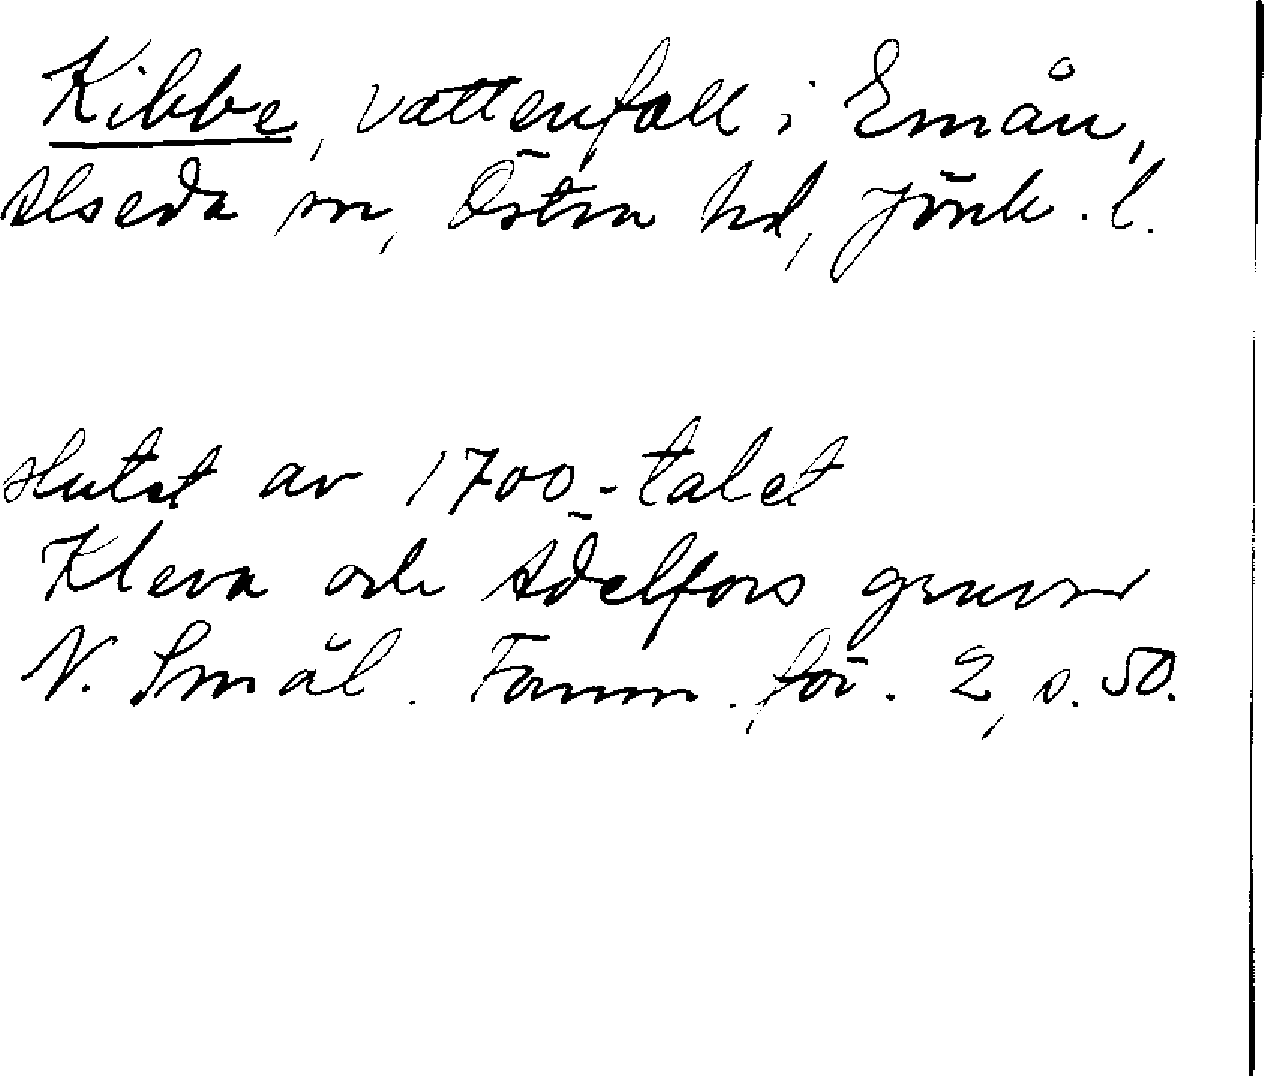 Kibbe, vattenfall i Emån,
Alseda sn, Östra hd, Jönk. l.
slutet av 1700-talet
Kleva och Ädelfors gruvor
N. Smål. Fornm. för. 2, s. 50.